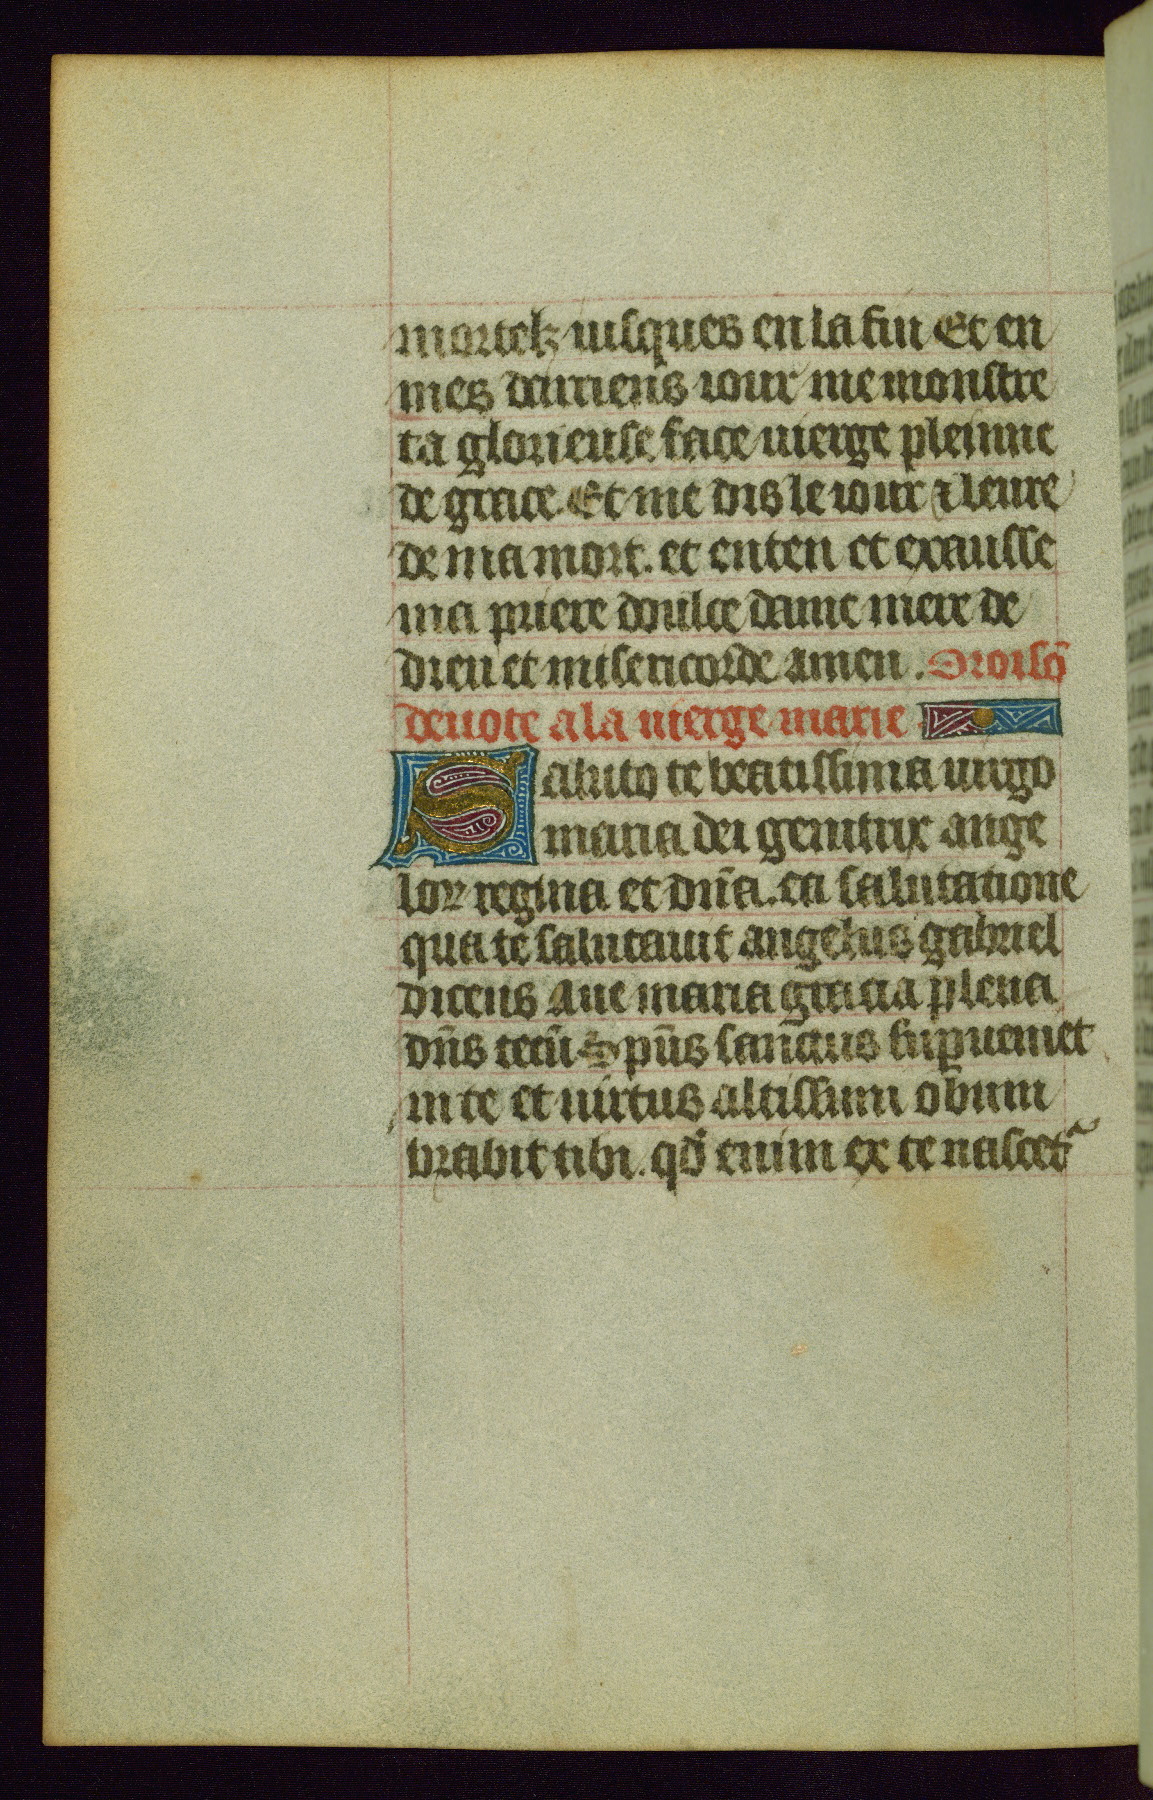 mortelz iusques en la fin Et en
mes dairiens iour me monstre
ta glorieuse face uierge pleinne
de grace. Et me dis le iour ⁊ leure
de ma mort. et enten et exausse
ma priere doulce dame mere de
dieu et misericorde amen. Oroisō
deuote a la uierge marie
Saluto te beatissima uirgo
maria dei genitrix ange
loꝝ regina et dn̄a. ea salutatione
qua te salutauit angelus gabriel
dicens Aue maria gracia plena
dn̄s tecū Sp̄us sanctus suꝑueniet
in te et uirtus altissimi obum
brabit tibi. qd̓ enim ex te nascet᷑